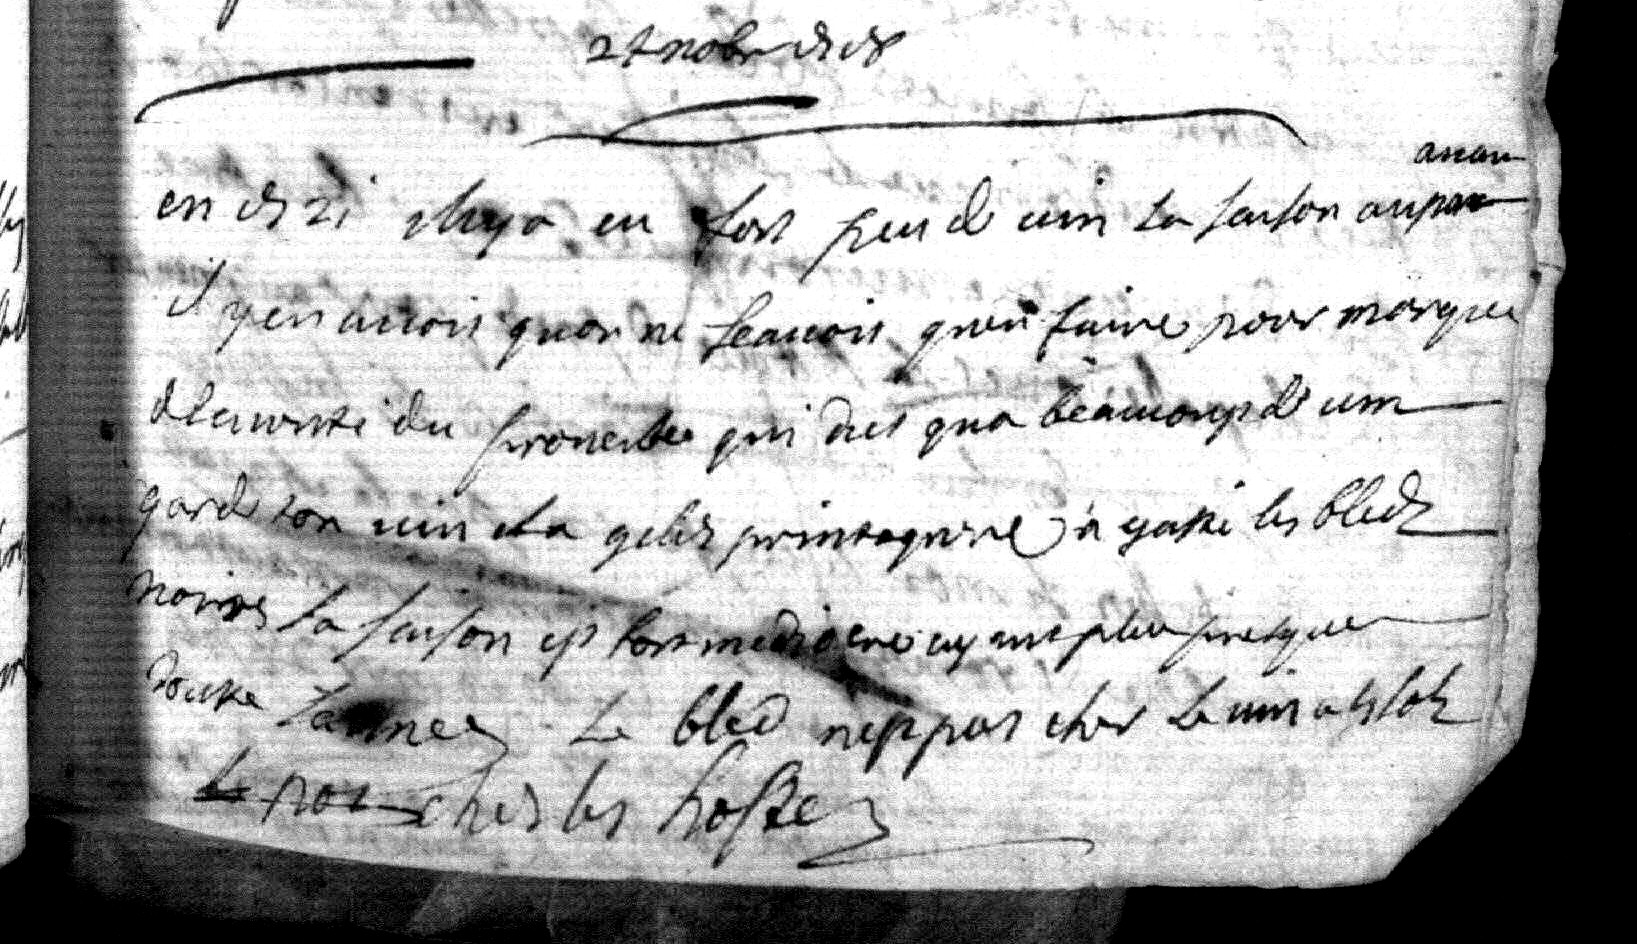 27 nobre
avan
en il y a eu fort peu de vin La saison aupar
il y en avoit quon ne scavoit quen faire pour marque
de la verité du proverbe qui dit qua beaucoup de vin
garde ton vin et la gelée printaniere a gasté les bledz
noirs La saison est fort mediocre ayant pleu presque
toutte Lannee Le bled nest pas cher Le vin a 4 solz
Le pot chez les hostes